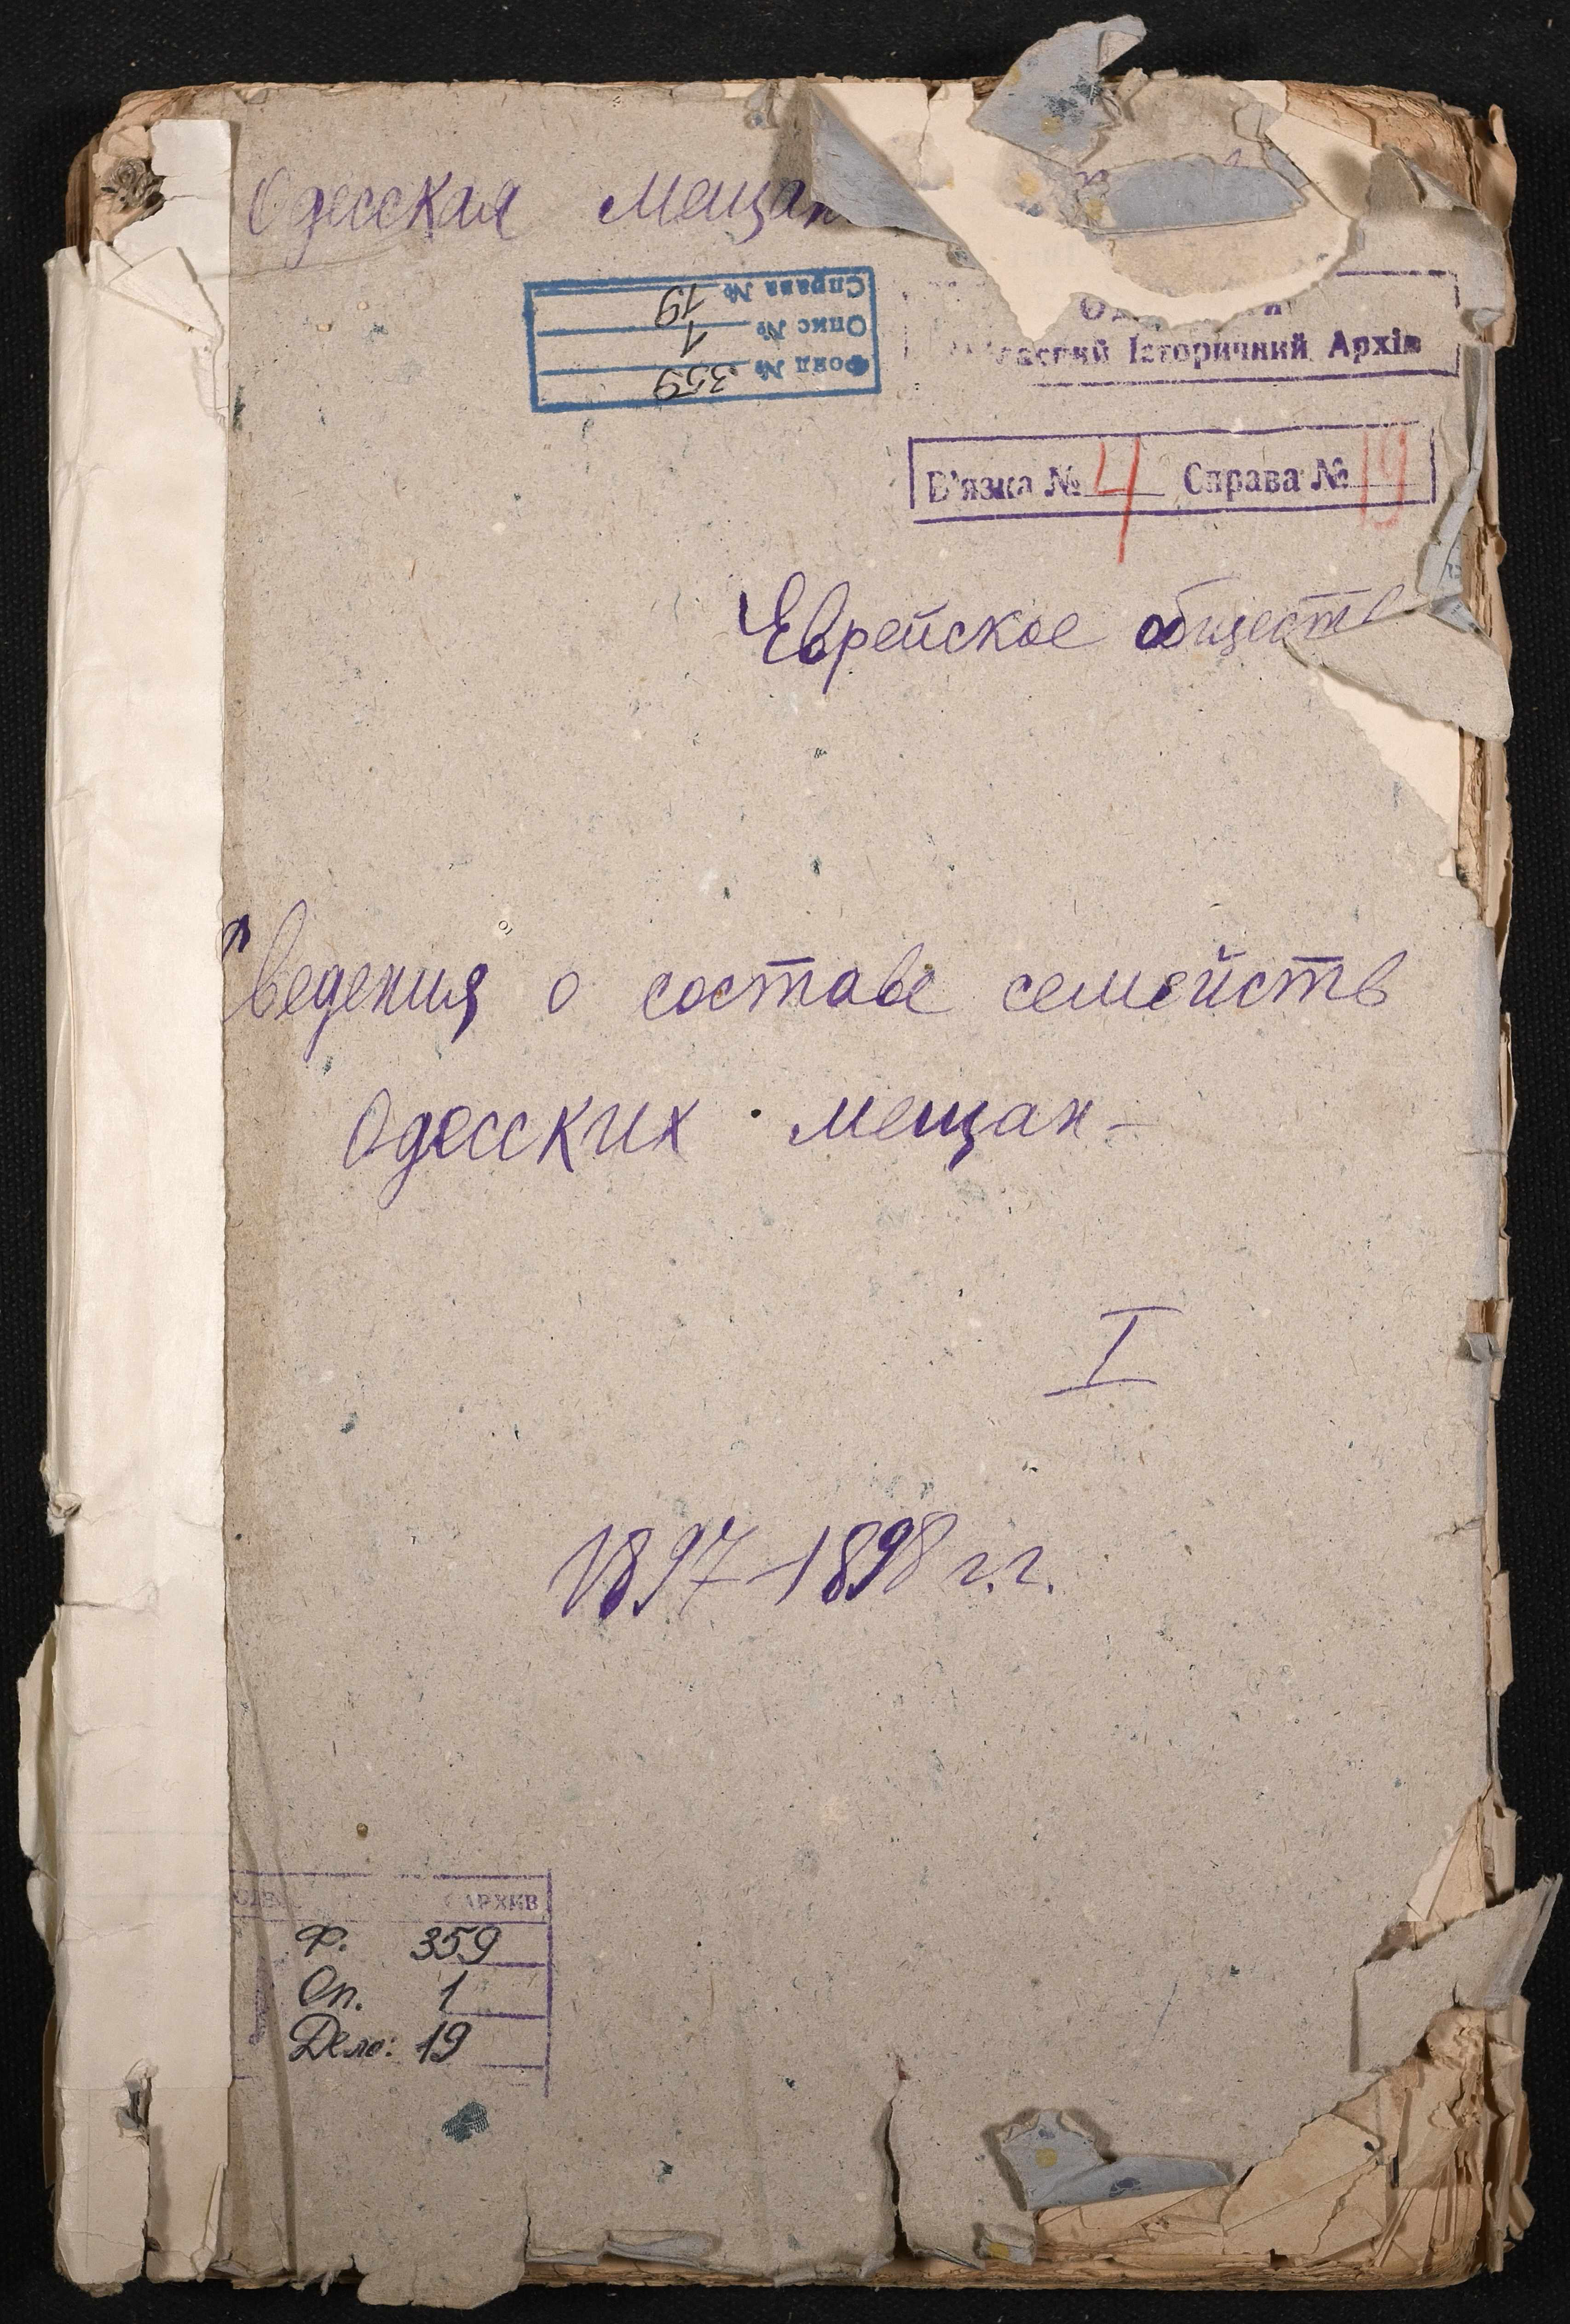 Одесская мещан
Справа № 19
Опис № 1
Фонд № 359
Історичний Архів
В'язка № 4 Справа № 19
Еврейское обществ
ведения о составе семейств
Одесских мещан
I
1897-1898 г.г.
АРХИВ
Ф. 359
Оп. 1
Дело: 19